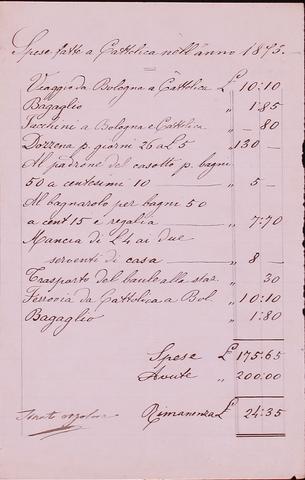 Spese fatte a Cattolica nell'anno 1875.
Viaggio da Bologna a Cattolica £ 10:10
Bagaglio „ 1:85
Facchini a Bologna e Cattolica „ – 80
Dozzena p. giorni 26 a £ 5 „ 130 –
Al padrone del casotto p. bagni
50 a centesimi 10 „ 5 –
Al bagnarolo per bagni 50
a cent 15 e regalia „ 7:70
Mancia di £ 4 ai due
serventi di casa „ 8 –
Trasporto del baule alla staz. „ 30
Ferrovia da Cattolica a Bol. „ 10:10
Bagaglio „ 1:80
Spese £ 175:65
Avute „ 200:00
Rimanenza £ 24:35